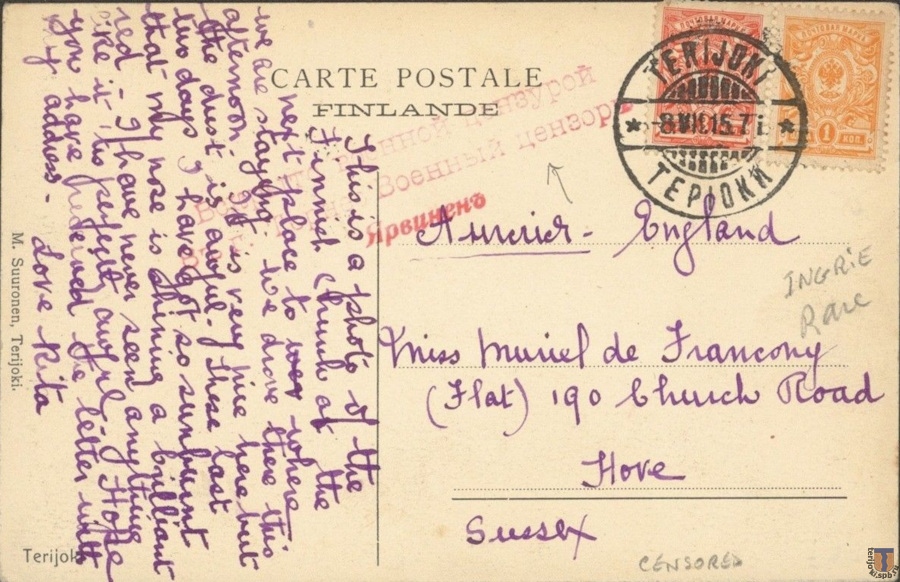 CARTE POSTALE
FINLANDE
This is a photo of the
Finnish Church at the
next place to where
we are staying. We drove there this
afternoon. It is very nice here but
the dust is awful. These last
two days I have got so sunburnt
that my nose is shining a brilliant
red I have never seen anything
like it, its perfectly awful - Hope
you have received the letter with
my address -
Love Rita
военной цензурой
Военный цензоръ
Ярвиненъ
ПОЧТОВАЯ МАРКА
ПОЧТОВАЯ МАРКА
1 КОП.
TERIJOKI
8.VII.15.7
ТЕРІОКИ
England
INGRIE
Rare
Miss Muriel de Francony
(Flat) 190 Church Road
Hove
Sussex
CENSORED
M. Suuronen, Terijoki.
Terijoki
terijoki.spb.ru